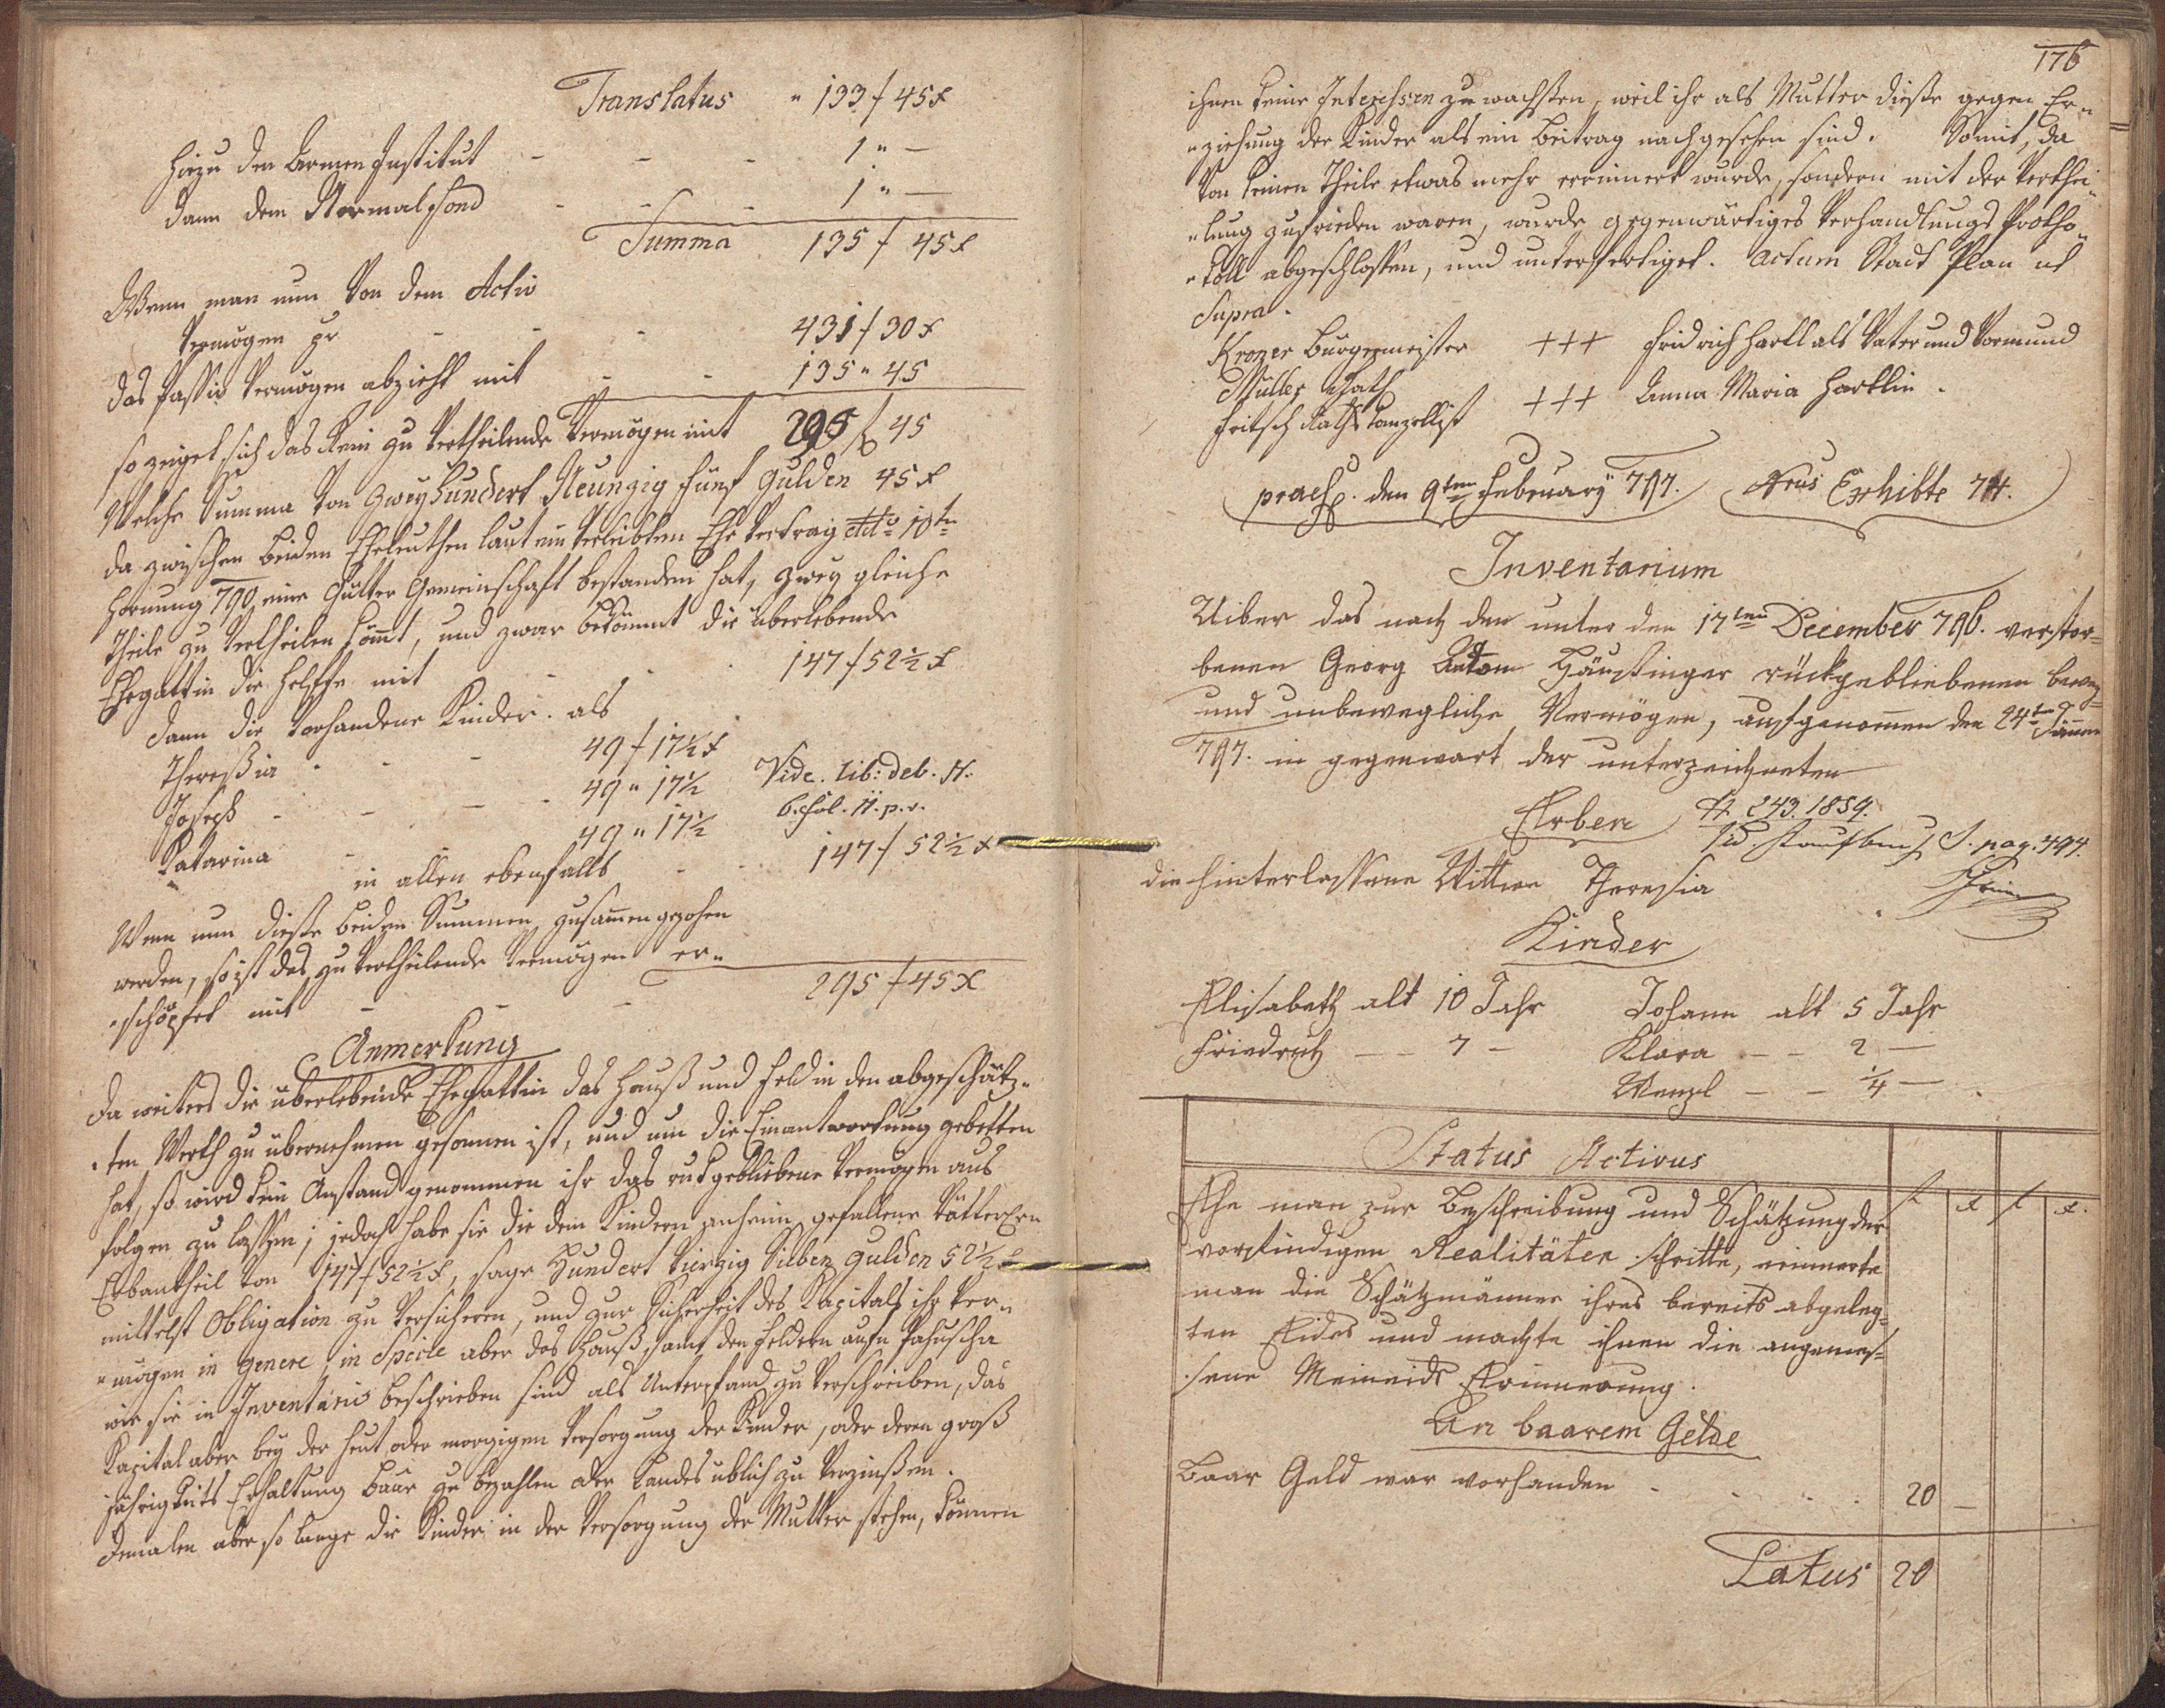 Translatus " 133 f 45 x
Hiezu den Armen Institut - - - 1 " —
dann dem Normalfond - - - 1 " —
Summa 135 f 45 x
Wenn man nun von dem Activ
Vermögen pr - - - 431 f 30 x
das Passiv Vermögen abzieht mit - - 135 " 45
so zeiget sich das Rein zu vertheilende Vermögen mit 295 f 45
Welche Summa von Zweyhundert Neunzig fünf Gulden 45 x
da zwischen beiden Eheleuthen laut ein verleibten Ehe Vertrag ddto 10ten
Hornung 790 eine Gütter Gemeinschaft bestanden hat, zwey gleiche
Theile zu vertheilen kömt, und zwar bekömmt die überlebende
Ehegattin die Helffte mit - - - 147 f 52 ½ x
dann die vorhandene Kinder. als
Theresia - - - 49 f 17 ½ x
Joseph - - - 49 " 17 ½ Vide. Lib: deb. N:
Katarina - 49 " 17 ½ 6. fol. 11. p. v.
in allen ebenfalls - - 147 f 52 ½ x
Wenn nun diese beiden Summen zusamen gezohen
werden, so ist das zu vertheilende Vermögen er„
„schöpfet mit - - - 295 f 45 x
Anmerkung
Da weiters die überlebende Ehegattin das Hauß und Feld in den abgeschätz„
„ten Werth zu übernehmen gesonnen ist, und um die Einantwortung gebetten
hat, so wird kein Anstand genommen ihr das rukgebliebene Vermögen aus
folgen zu lassen; jedoch habe sie die dem Kindern anheim gefallene Vätterl:
Erbantheil von 147 f 52 ½ x, sage Hundert Vierzig Sieben Gulden 52 ½ x
mittelst Obligation zu versicheren, und zur Sicherheit des Kapitals ihr Ver„
„mögen in genere, in Specie aber das Hauß, samt den Feldern aufn
wie sie in Inventario beschrieben sind als Unterpfand zu verschreiben, das
Kapital aber bey der heut oder morgigen Versorgung der Kinder, oder deren groß
jährigkeits Erhaltung baar zu bezahlen oder Landes üblich zu verzinßen.
Demalen aber so lange die Kinder in der Versorgung der Mutter stehen, können
176
ihnen keine Interessen zu wachsen, weil ihr als Mutter diese gegen Er„
„ziehung der Kinder als ein Beitrag nachgesehen sind. Somit, da
von keinen Theile etwas mehr erinnert wurde, sondern mit der Verthei„
„lung zufrieden waren, wurde gegenwärtiges Verhandlungs Protho„
„koll abgeschlossen, und unterfertiget. Actum Stadt Plan ut
Supra.
Kroner Burgermeister +++ Fridrich Hartl als Vater und Vormund
Müller Rath +++ Anna Maria Hartlin.
Fritsch Raths Kanzellist
praes. den 9ten February 797. Nrus Exhibte 74.
Inventarium
Uiber das nach den unter den 17ten December 796. verstor=
benen Georg Anton Häußinger rückgebliebenen beweg=
und unbewegliche Vermögen, aufgenomen den 24ten Jänner
797. in gegenwart der unterzeichneten
Erben N. 243. 1859.
Vid. Kaufbuch I. pag. 494.
die hinterlassene Wittwe Theresia
Kinder
Elisabeth alt 10 Jahr Johann alt 5 Jahr
Friedrich — — 7 — Klara — — 2 —
Wenzl — — ¼ —
Status Activus
f x f x
Ehe man zur Beschreibung und Schätzung der
vorfindigen Realitäten schritte, erinnerte
man die Schätzmänner ihres bereits abgeleg=
ten Eides und machte ihnen die angemes=
sene Meineids Erinnerung.
An baarem Gelde
Baar Geld war vorhanden - - - - 20 —
Latus 20